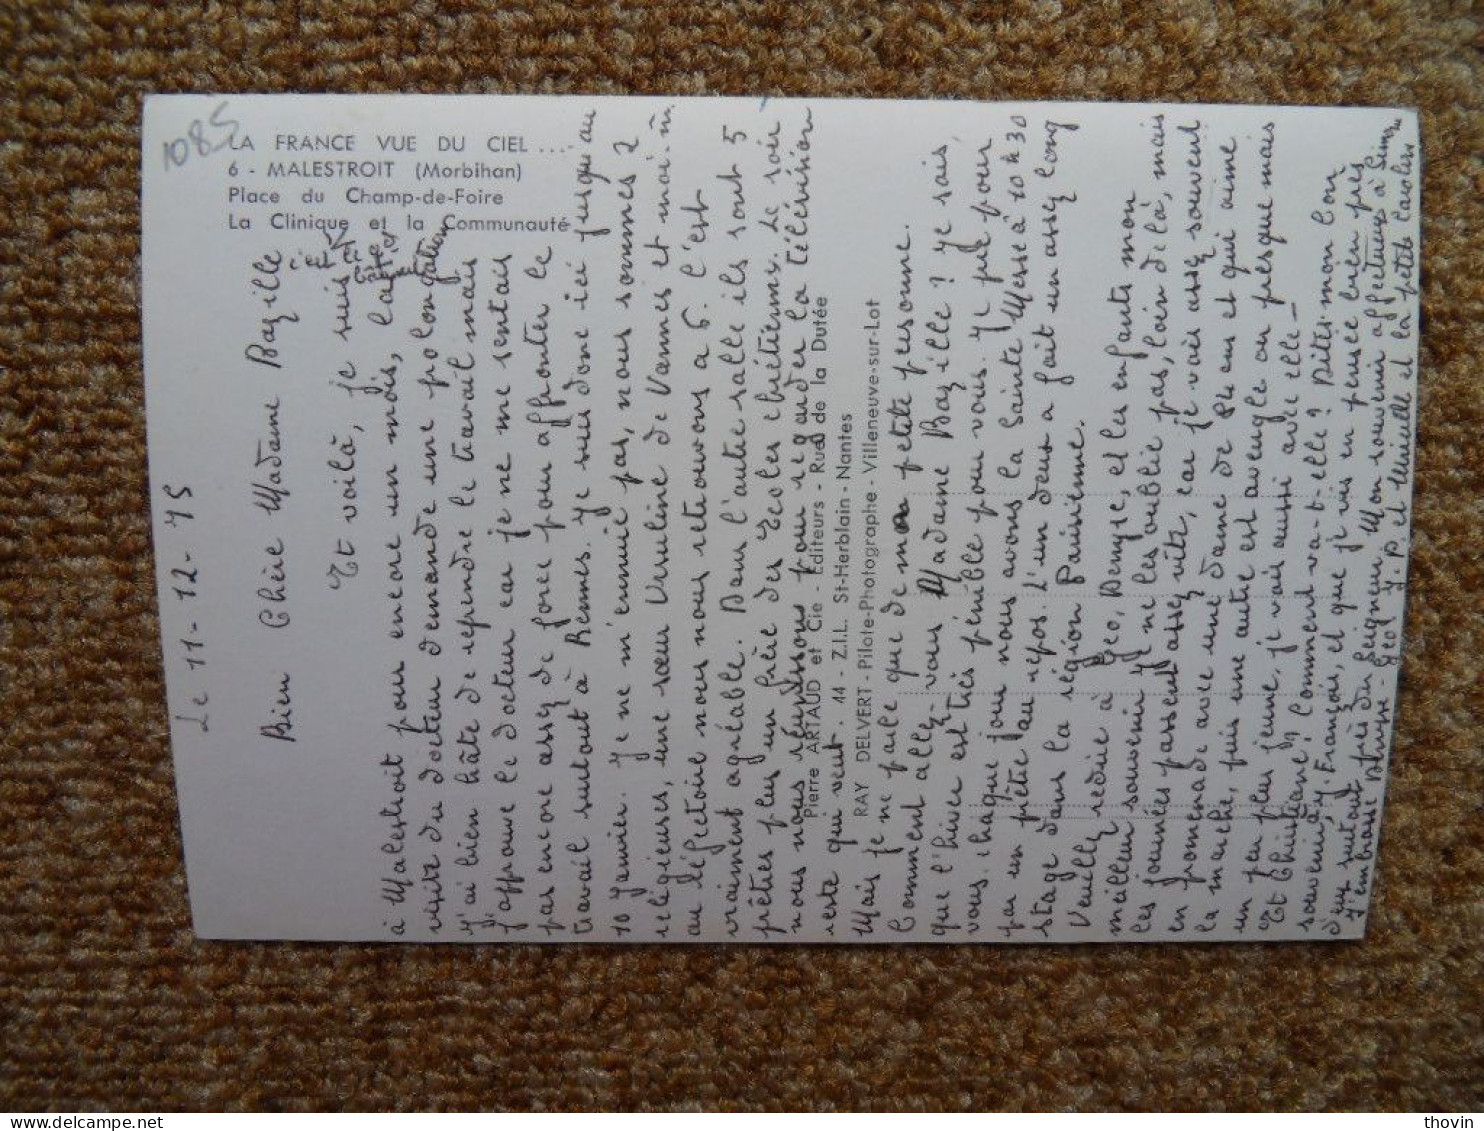 1085
LA FRANCE VUE DU CIEL ...
6 - MALESTROIT (Morbihan)
Place du Champ-de-Foire
La Clinique et la Communauté
Pierre ARTAUD et Cie - Éditeurs - Rue de la Dutée
44 - Z.I.L. St-Herblain - Nantes
RAY DELVERT - Pilote-Photographe - Villeneuve-sur-Lot
Le 11-12-75
Bien Chère Madame Bazille
Et voilà, je suis
c'est le gd
bâtiment
à Malestroit pour encore un mois, la
visite du docteur demande une prolongation
j'ai bien hâte de reprendre le travail mais
j'approuve le docteur car je ne me sentais
pas encore assez de force pour affronter le
travail surtout à Rennes. Je suis donc ici jusqu'au
10 Janvier. Je ne m'ennuie pas, nous sommes 2
religieuses, une sœur Ursuline de Vannes et moi. m
au réfectoire nous nous retrouvons à 6. C'est
vraiment agréable. Dans l'autre salle ils sont 5
prêtres plus un frère des Ecoles chrétiennes. Le soir
nous nous réunissons pour regarder la télévision
reste qui veut.
Mais je ne parle que de ma petite personne.
Comment allez-vous Madame Bazille ? Je sais
que l'hiver est très pénible pour vous. Je prie pour
vous. Chaque jour nous avons la Sainte Messe à 10 h 30
par un prêtre au repos. L'un deux a fait un assez long
stage dans la région Parisienne.
Veuillez redire à Géo, Denyse, et les enfants mon
meilleur souvenir je ne les oublie pas, loin de là, mais
les journées passent assez vite, car je vais assez souvent
en promenade avec une dame de ans et qui aime
la marche, puis une autre est aveugle ou presque mais
un peu plus jeune, je vais aussi avec elle -
Et Christiane ? Comment va-t-elle ? Dites mon bon
souvenir à François, et que je vis en pensée bien près
d'eux surtout près du Seigneur. Mon souvenir affectueux à
J'embrasse Denyse - Géo J. P. et Murielle et la petite
thovin